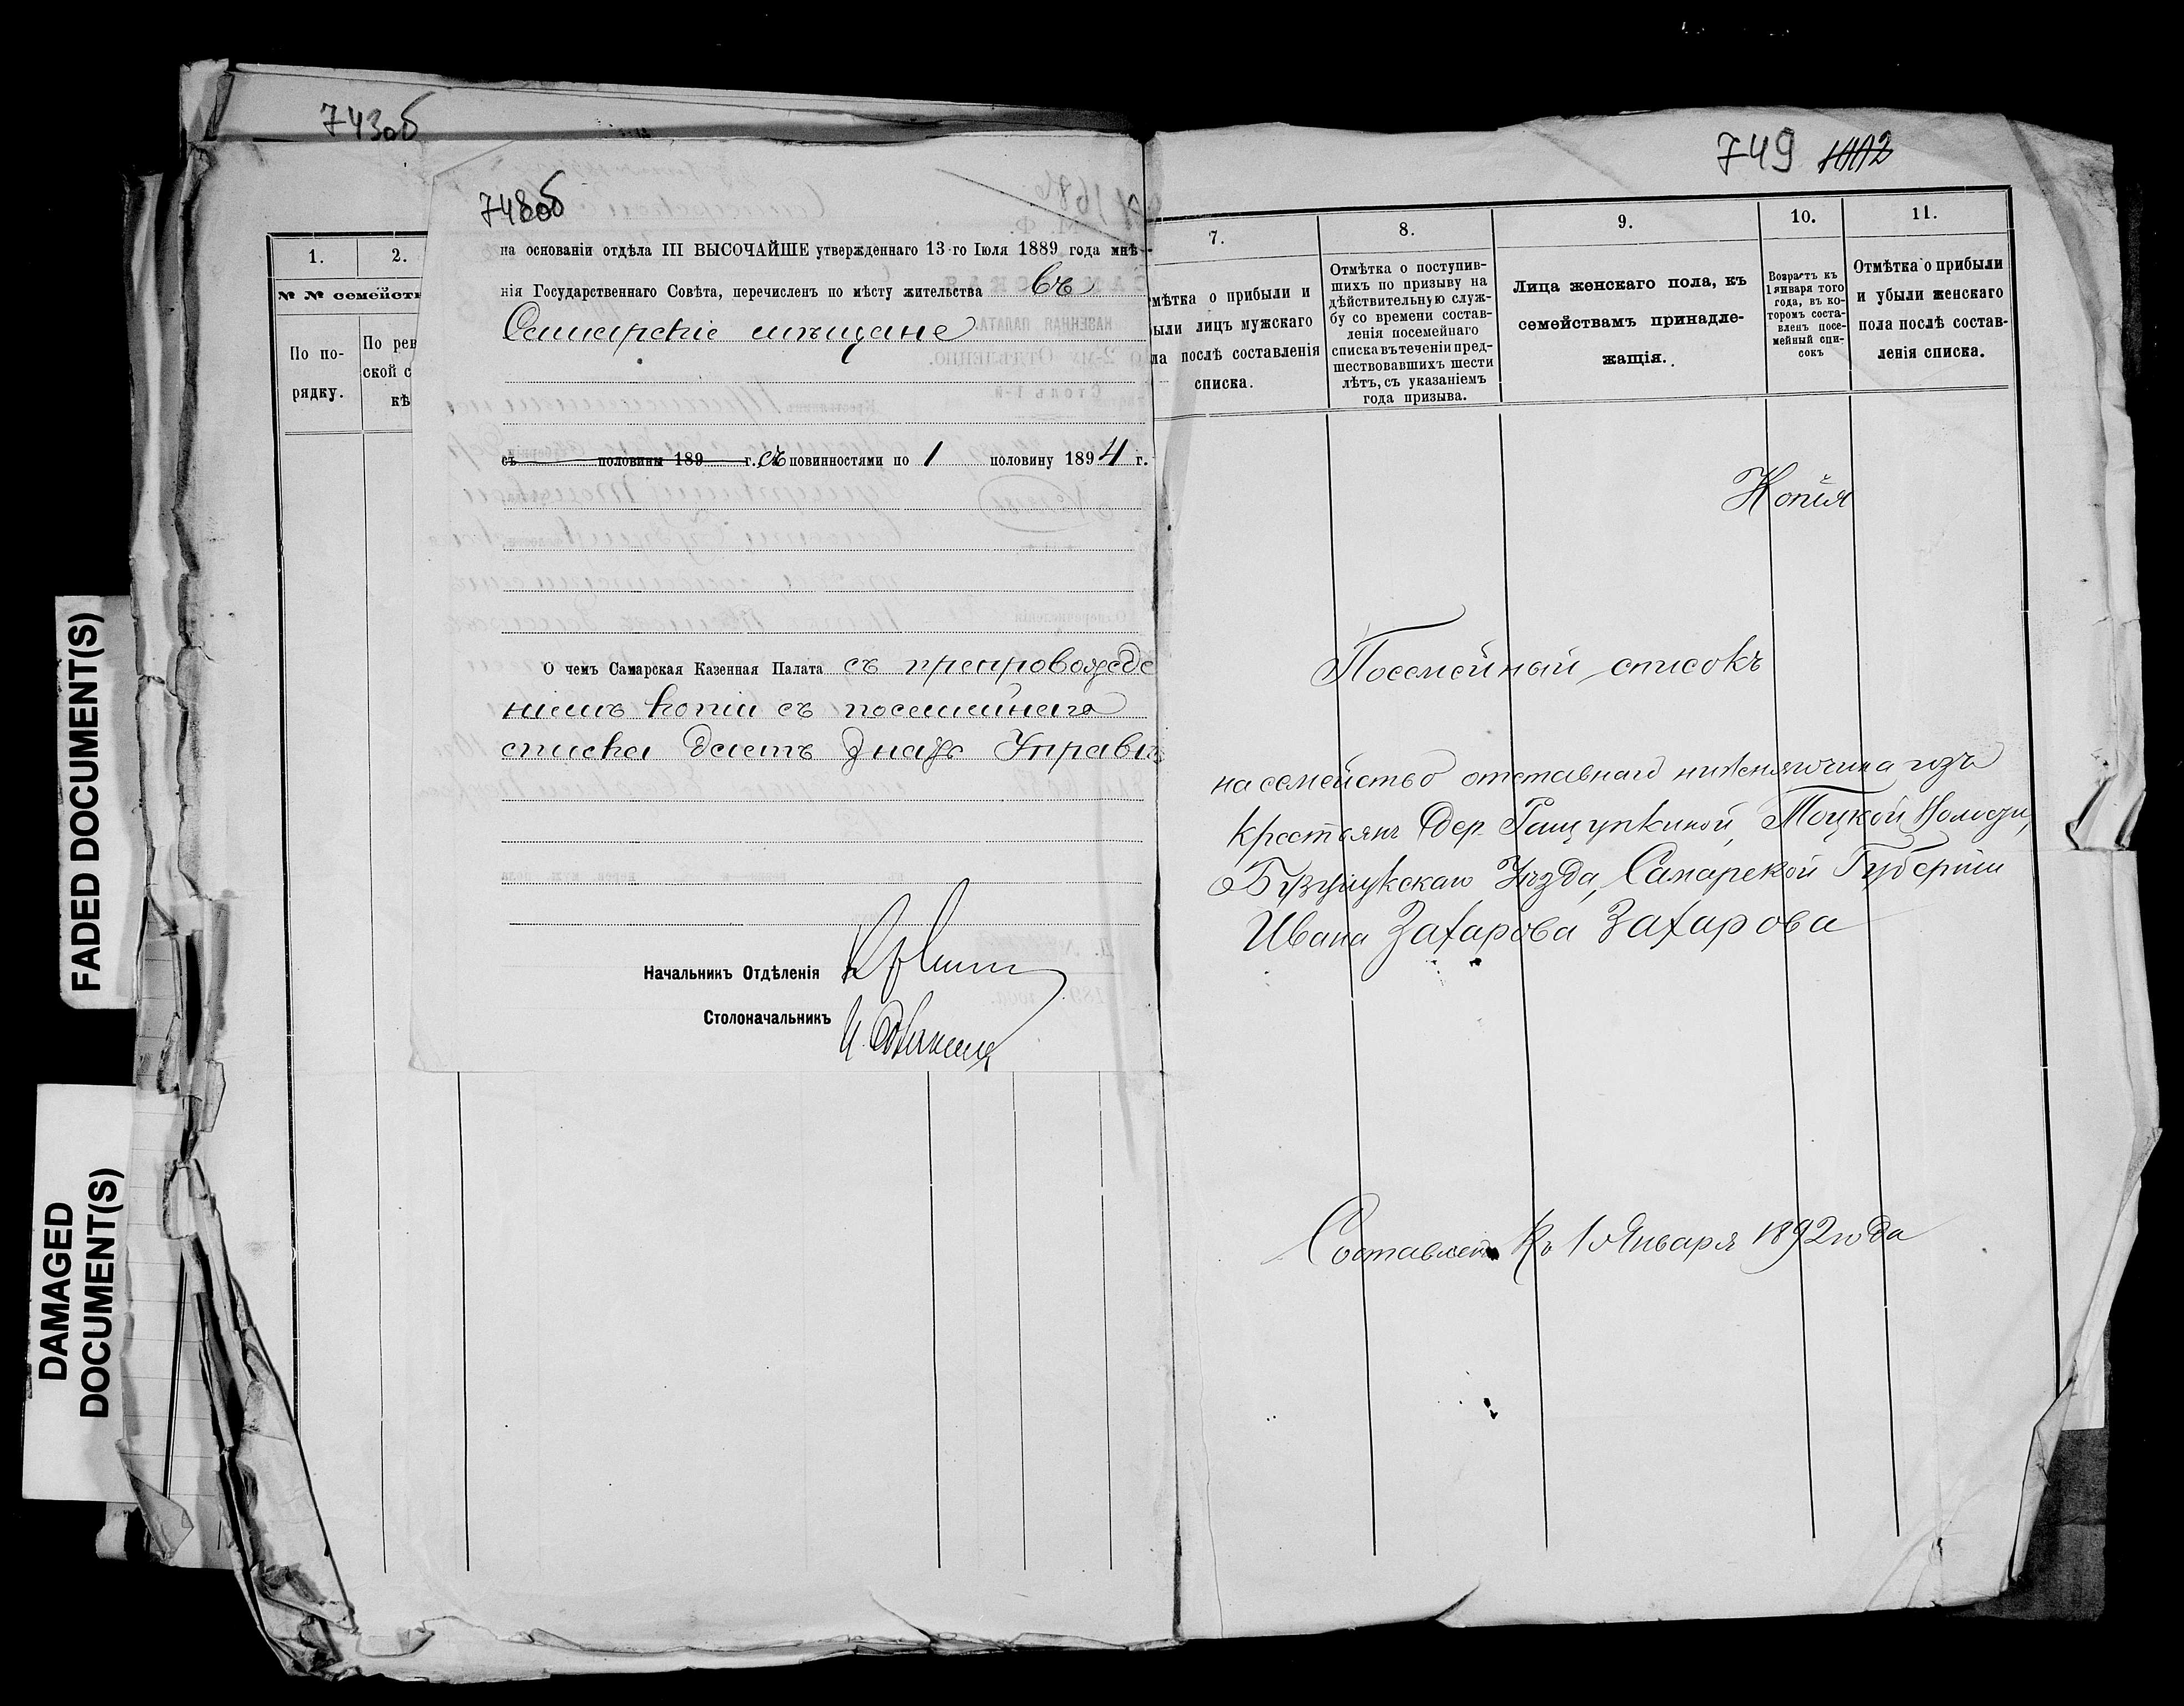 743об
748об
на основаніи отдѣла III ВЫСОЧАЙШЕ утвержденнаго 13-го Іюля 1889 года мнѣ-
нія Государственнаго Совѣта, перечисленъ по мѣсту жительства въ
Самарскіе мѣщане
съ половины 189 г., съ повинностями по 1 половину 1894 г.
О чемъ Самарская Казенная Палата съ препровожде
ніемъ копіи съ посемейнаго
списка даетъ знать Управѣ
Начальникъ Отдѣленія
Столоначальникъ
1.
2.
№ № семейств
По по-
рядку.
По рев
ской с
кѣ
749
7.
мѣтка о прибыли и
ыли лицъ мужскаго
ла послѣ составленія
списка.
8.
Отмѣтка о поступив-
шихъ по призыву на
дѣйствительную служ-
бу со времени состав-
ленія посемейнаго
списка въ теченіи пред-
шествовавшихъ шести
лѣтъ, съ указаніемъ
года призыва.
9.
Лица женскаго пола, къ
семействамъ принадле-
жащія.
10.
Возрастъ къ
1 января того
года, въ ко-
торомъ соста-
вленъ посе-
мейный спи-
сокъ
11.
Отмѣтка о прибыли
и убыли женскаго
пола послѣ состав-
ленія списка.
Копія
Посемейный списокъ
на семейство отставнаго нижняго чина изъ
крестьянъ Дер. Ращупкиной, Тоцкой Волости,
Бузулукскаго Уѣзда, Самарской Губерніи
Ивана Захарова Захарова
Составленъ Къ 1 Января 1892 года
FADED DOCUMENT(S)
DAMAGED
DOCUMENT(S)